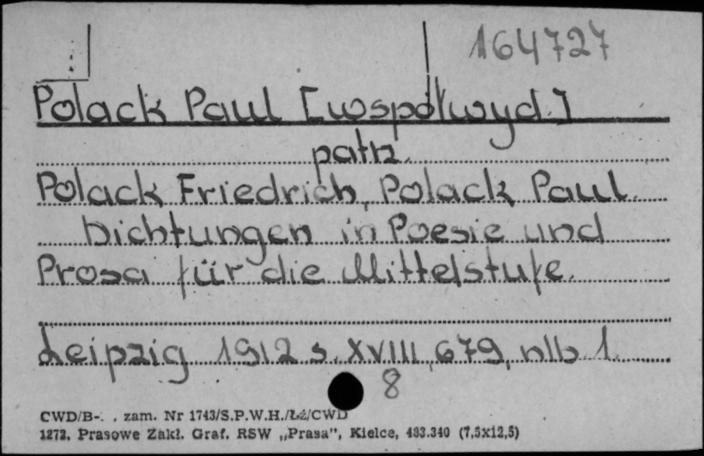 164727
Polack Paul [współwyd.]
patrz
Polack Friedrich, Polack Paul
Dichtungen in Poesie und
Prosa für die Mittelstufe.
Leipzig 1912 s. XVIII, 679, nlb 1.
8
CWD/B-. . zam. Nr 1743/S.P.W.H./Łź/CWD
1272. Prasowe Zakł. Graf. RSW „Prasa”, Kielce, 433.340 (7,5x12,5)